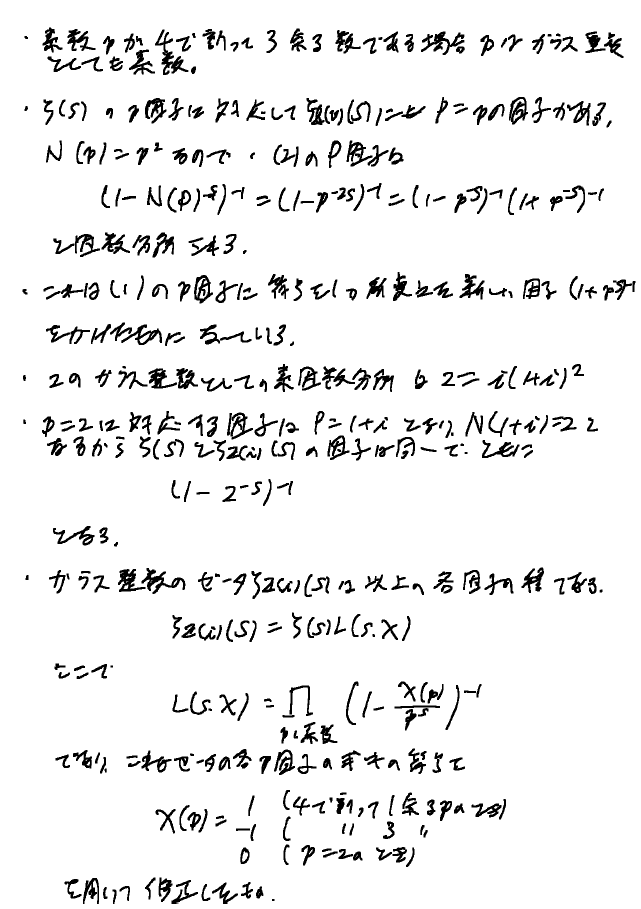 ・素数pが4で割って3余る数である場合pはガウス整数
としても素数。
・ζ(s)のp因子に対応してζZ(i)(s)にもP=pの因子がある。
N(p)=p²なので・(2)のP因子は
(1-N(p)^{-s})^{-1}=(1-p^{-2s})^{-1}=(1-p^{-s})^{-1}(1+p^{-s})^{-1}
と因数分解される。
・これは(1)のp因子に符号を1か所変えた新しい因子(1+p^{-s})^{-1}
をかけたものになっている。
・2のガウス整数としての素因数分解は2=i(1+i)²
・p=2に対応する因子はP=1+iとなり、N(1+i)=2と
なるからζ(s)とζZ(i)(s)の因子は同一で、ともに
(1-2^{-s})^{-1}
となる。
・ガウス整数のゼータζZ(i)(s)は以上の各因子の積である。
ζZ(i)(s)=ζ(s)L(s.χ)
ここで
L(s.χ)=∏(1-χ(p)/p^s)^{-1}
p:素数
であり、これはゼータの各p因子の
の符号を
χ(p)= 1 (4で割って1余るpのとき)
-1 ( 〃 3 〃
0 (p=2のとき)
を用いて修正したもの.